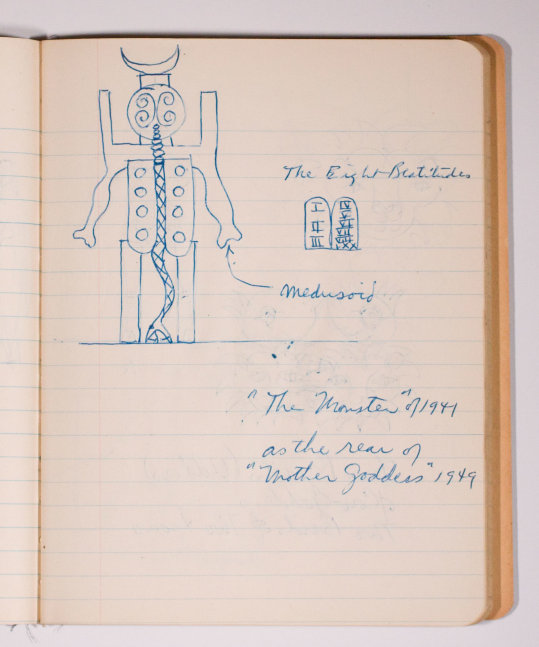 The Eight Beatitudes
I
II
III
medusoid
"The Monster" of 1941
as the rear of
"Mother Goddess" 1949